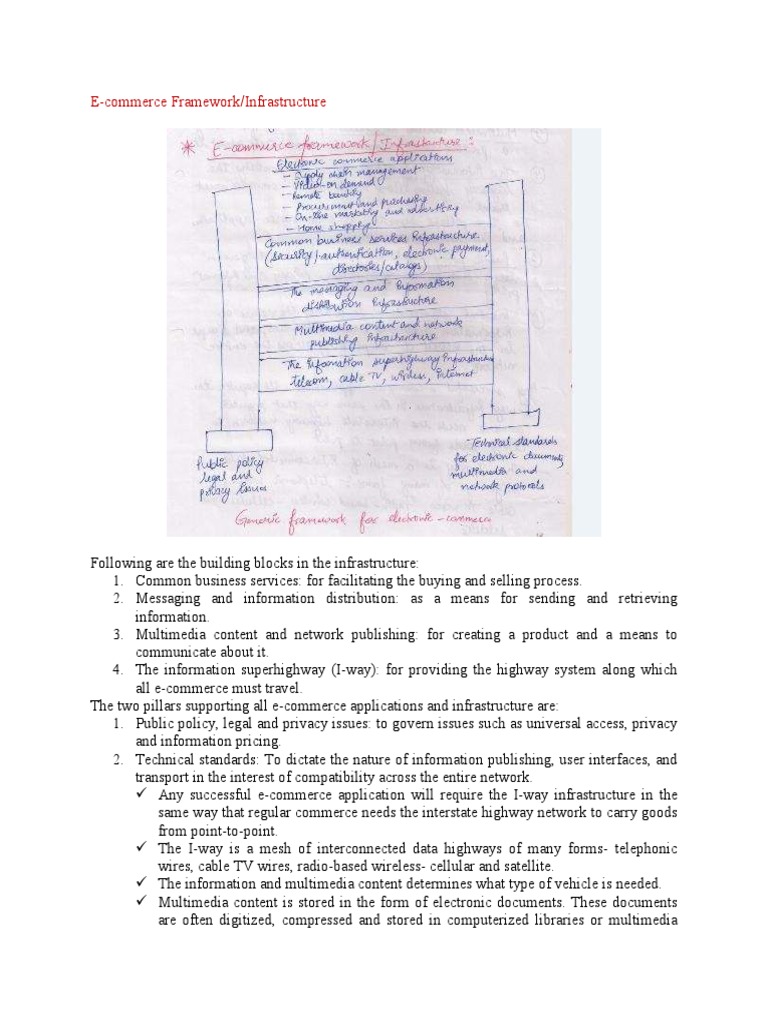 E-commerce Framework/Infrastructure
* E-commerce framework/Infrastructure :
Electronic commerce applications
- Supply chain management
- Video-on demand
- Remote banking
- Procurement and purchasing
- On-line marketing and advertising
- Home shopping
Common business services Infrastructure
(security/authentication, electronic payment,
directories/catalogs)
The messaging and Information
distribution Infrastructure
Multimedia content and network
publishing Infrastructure
The Information superhighway Infrastructure
telecom, cable TV, wireless, internet
Public policy
legal and
privacy issues
Technical standards
for electronic documents,
multimedia and
network protocols
Generic framework for electronic-commerce
Following are the building blocks in the infrastructure:
1. Common business services: for facilitating the buying and selling process.
2. Messaging and information distribution: as a means for sending and retrieving
information.
3. Multimedia content and network publishing: for creating a product and a means to
communicate about it.
4. The information superhighway (I-way): for providing the highway system along which
all e-commerce must travel.
The two pillars supporting all e-commerce applications and infrastructure are:
1. Public policy, legal and privacy issues: to govern issues such as universal access, privacy
and information pricing.
2. Technical standards: To dictate the nature of information publishing, user interfaces, and
transport in the interest of compatibility across the entire network.
✓ Any successful e-commerce application will require the I-way infrastructure in the
same way that regular commerce needs the interstate highway network to carry goods
from point-to-point.
✓ The I-way is a mesh of interconnected data highways of many forms- telephonic
wires, cable TV wires, radio-based wireless- cellular and satellite.
✓ The information and multimedia content determines what type of vehicle is needed.
✓ Multimedia content is stored in the form of electronic documents. These documents
are often digitized, compressed and stored in computerized libraries or multimedia